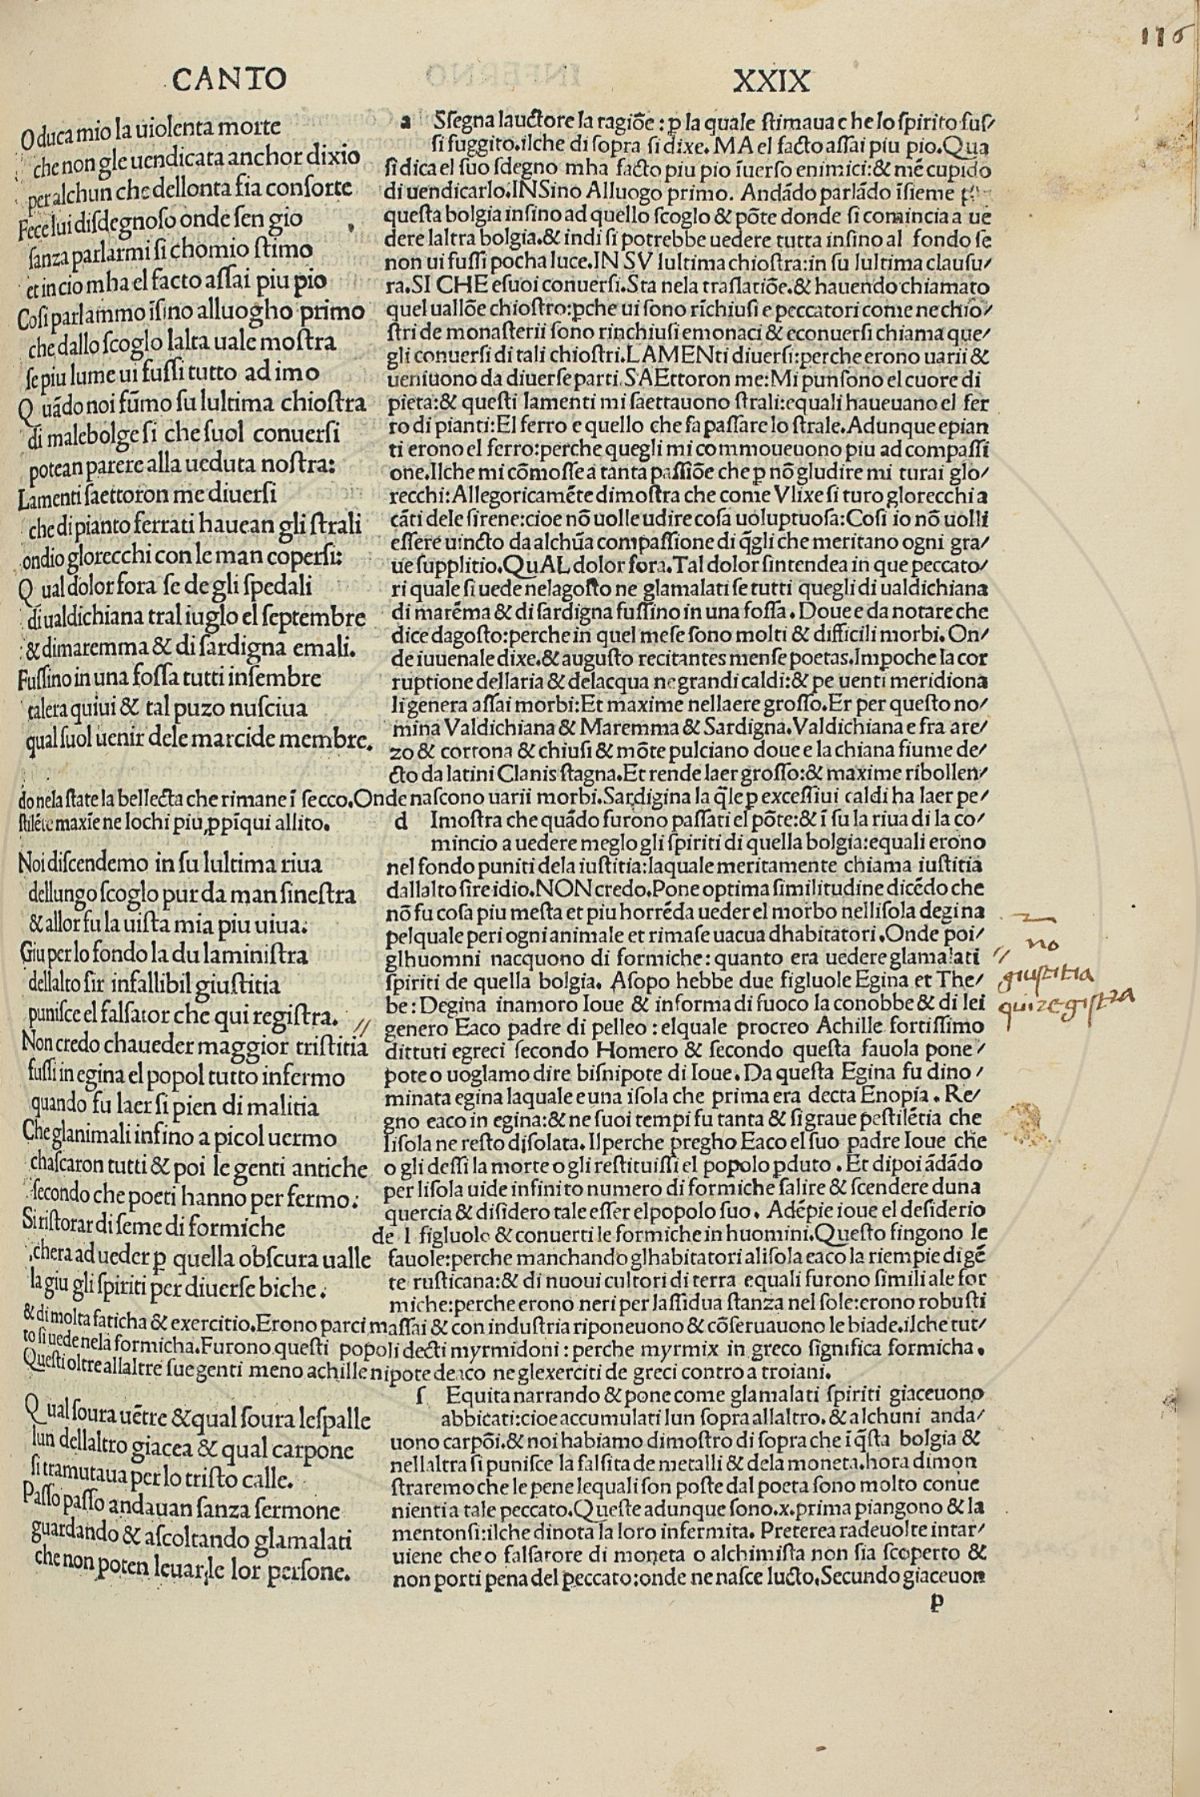 116
CANTO XXIX
O duca mio la uiolenta morte
che non gle uendicata anchor dixio
per alchun che dellonta sia consorte
Fece lui disdegnoso onde sen gio
sanza parlarmi si chomio stimo
et in cio mha el facto assai piu pio
Cosi parlammo ĩsino alluogho primo
che dallo scoglo laltra uale mostra
se piu lume ui fussi tutto ad imo
Quãdo noi fũmo su lultima chiostra
di malebolge si che suol conuersi
potean parere alla ueduta nostra:
Lamenti saettoron me diuersi
che di pianto ferrati hauean gli strali
ondio glorecchi con le man copersi:
Qual dolor fora se de gli spedali
di ualdichiana tral iuglo el septembre
& dimaremma & di sardigna emali.
Fussino in una fossa tutti insembre
tal era quiui & tal puzo nusciua
qual suol uenir dele marcide membre.
a Ssegna lauctore la ragiõe: ꝑ la quale stimaua che lo spirito fus/
si fuggito. ilche di sopra si dixe. MA el facto assai piu pio. Qua
si dica el suo sdegno mha facto piu pio ĩuerso enimici: & mẽ cupido
di uendicarlo. INSino Alluogo primo. Andãdo parlãdo ĩsieme
questa bolgia insino ad quello scoglo & põte donde si comincia a ue
dere laltra bolgia. & indi si potrebbe uedere tutta insino al fondo se
non ui fussi pocha luce. IN SV lultima chiostra: in su lultima clausu/
ra. SI CHE esuoi conuersi. Sta nela traslatiõe. & hauendo chiamato
quel uallõe chiostro: ꝑche ui sono rĩchiusi e peccatori come ne chio/
stri de monasterii sono rinchiusi emonaci & econuersi chiama que/
gli conuersi di tali chiostri. LAMENti diuersi: perche erono uarii &
ueniuono da diuerse parti. SAEttoron me: Mi punsono el cuore di
pieta: & questi lamenti mi saettauono strali: equali haueuano el fer
ro di pianti: El ferro e quello che fa passare lo strale. Adunque epian
ti erono el ferro: perche quegli mi commoueuono piu ad compassi
one. Ilche mi cõmosse a tanta passiõe che ꝑ nõ gludire mi turai glo/
recchi: Allegoricamẽte dimostra che come Vlixe si turo glorecchi a
cãti dele sirene: cioe nõ uolle udire cosa uoluptuosa: Cosi io nõ uolli
essere uincto da alchũa compassione di q̃gli che meritano ogni gra/
ue supplitio. QuAL dolor fora. Tal dolor sintendea in que peccato/
ri quale si uede nelagosto ne glamalati se tutti quegli di ualdichiana
di marẽma & di sardigna fussino in una fossa. Doue e da notare che
dice dagosto: perche in quel mese sono molti & difficili morbi. On/
de iuuenale dixe. & augusto recitantes mense poetas. Impoche la cor
ruptione dellaria & delacqua ne grandi caldi: & pe uenti meridiona
li genera assai morbi: Et maxime nellaere grosso. Er per questo no/
mina Valdichiana & Maremma & Sardigna. Valdichiana e fra are/
zo & cortona & chiusi & mõte pulciano doue e la chiana fiume de/
cto da latini Clanis stagna. Et rende laer grosso: & maxime ribollen/
do nela state la bellecta che rimane ĩ secco. Onde nascono uarii morbi. Sardigina la q̃le ꝑ excessiui caldi ha laer pe/
stilẽte maxĩe ne lochi piu ꝓpĩqui allito.
Noi discendemo in su lultima riua
dellungo scoglo pur da man sinestra
& allor fu la uista mia piu uiua:
Giu per lo fondo la du laministra
dellalto sir infallibil giustitia
punisce el falsator che qui registra. //
Non credo chaueder maggior tristitia
fussi in egina el popol tutto infermo
quando fu laer si pien di malitia
Che glanimali infino a picol uermo
chascaron tutti & poi le genti antiche
secondo che poeti hanno per fermo:
Si ristorar di seme di formiche
chera ad ueder ꝑ quella obscura ualle
la giu gli spiriti per diuerse biche:
d Imostra che quãdo furono passati el põte: & ĩ su la riua di la co/
mincio a uedere meglo gli spiriti di quella bolgia: equali erono
nel fondo puniti dela iustitia: laquale meritamente chiama iustitia
dallalto sire idio. NON credo. Pone optima similitudine dicẽdo che
nõ fu cosa piu mesta et piu horrẽda ueder el morbo nellisola degina
pelquale peri ogni animale et rimase uacua dhabitatori. Onde poi/
glhuomni nacquono di formiche: quanto era uedere glamalati
spiriti de quella bolgia. Asopo hebbe due figluole Egina et The/
be: Degina inamoro Ioue & informa di fuoco la conobbe & di lei
genero Eaco padre di pelleo: elquale procreo Achille fortissimo
dittuti egreci secondo Homero & secondo questa fauola pone/
pote o uoglamo dire bisnipote di Ioue. Da questa Egina fu dino/
minata egina laquale e una isola che prima era decta Enopia. Re/
gno eaco in egina: & ne suoi tempi fu tanta & si graue pestilẽtia che
lisola ne resto disolata. Ilperche pregho Eaco el suo padre Ioue che
o gli dessi la morte o gli restituissi el popolo ꝑduto. Et dipoi ãdãdo
per lisola uide infinito numero di formiche salire & scendere duna
quercia & disidero tale esser el popolo suo. Adẽpie ioue el desiderio
de l figluolo & conuerti le formiche in huomini. Questo fingono le
fauole: perche manchando glhabitatori alisola eaco la riempie di gẽ
te rusticana: & di nuoui cultori di terra equali furono simili ale for
miche: perche erono neri per lassidua stanza nel sole: erono robusti
& di molta faticha & exercitio. Erono parci massai & con industria riponeuono & cõseruauono le biade. ilche tut/
to si uede nela formicha. Furono questi popoli decti myrmidoni: perche myrmix in greco significa formicha.
Questi oltre allaltre sue genti meno achille nipote de aco ne glexerciti de greci contro a troiani.
no
// giustitia
qui registra
Qual soura uẽtre & qual soura lespalle
lun dellaltro giacea & qual carpone
si tramutaua per lo tristo calle.
Passo passo andauan sanza sermone
guardando & ascoltando glamalati
che non poten leuar le lor persone.
s Equita narrando & pone come glamalati spiriti giaceuono
abbicati: cioe accumulati lun sopra allaltro. & alchuni anda/
uono carpõi. & noi habiamo dimostro di sopra che ĩ q̃sta bolgia &
nellaltra si punisce la falsita de metalli & dela moneta. hora dimon
straremo che le pene lequali son poste dal poeta sono molto conue
nienti a tale peccato. Queste adunque sono. x. prima piangono & la
mentonsi: ilche dinota la loro infermita. Preterea radeuolte intar/
uiene che o falsatore di moneta o alchimista non sia scoperto &
non porti pena del peccato: onde ne nasce lucto. Secundo giaceuon
p